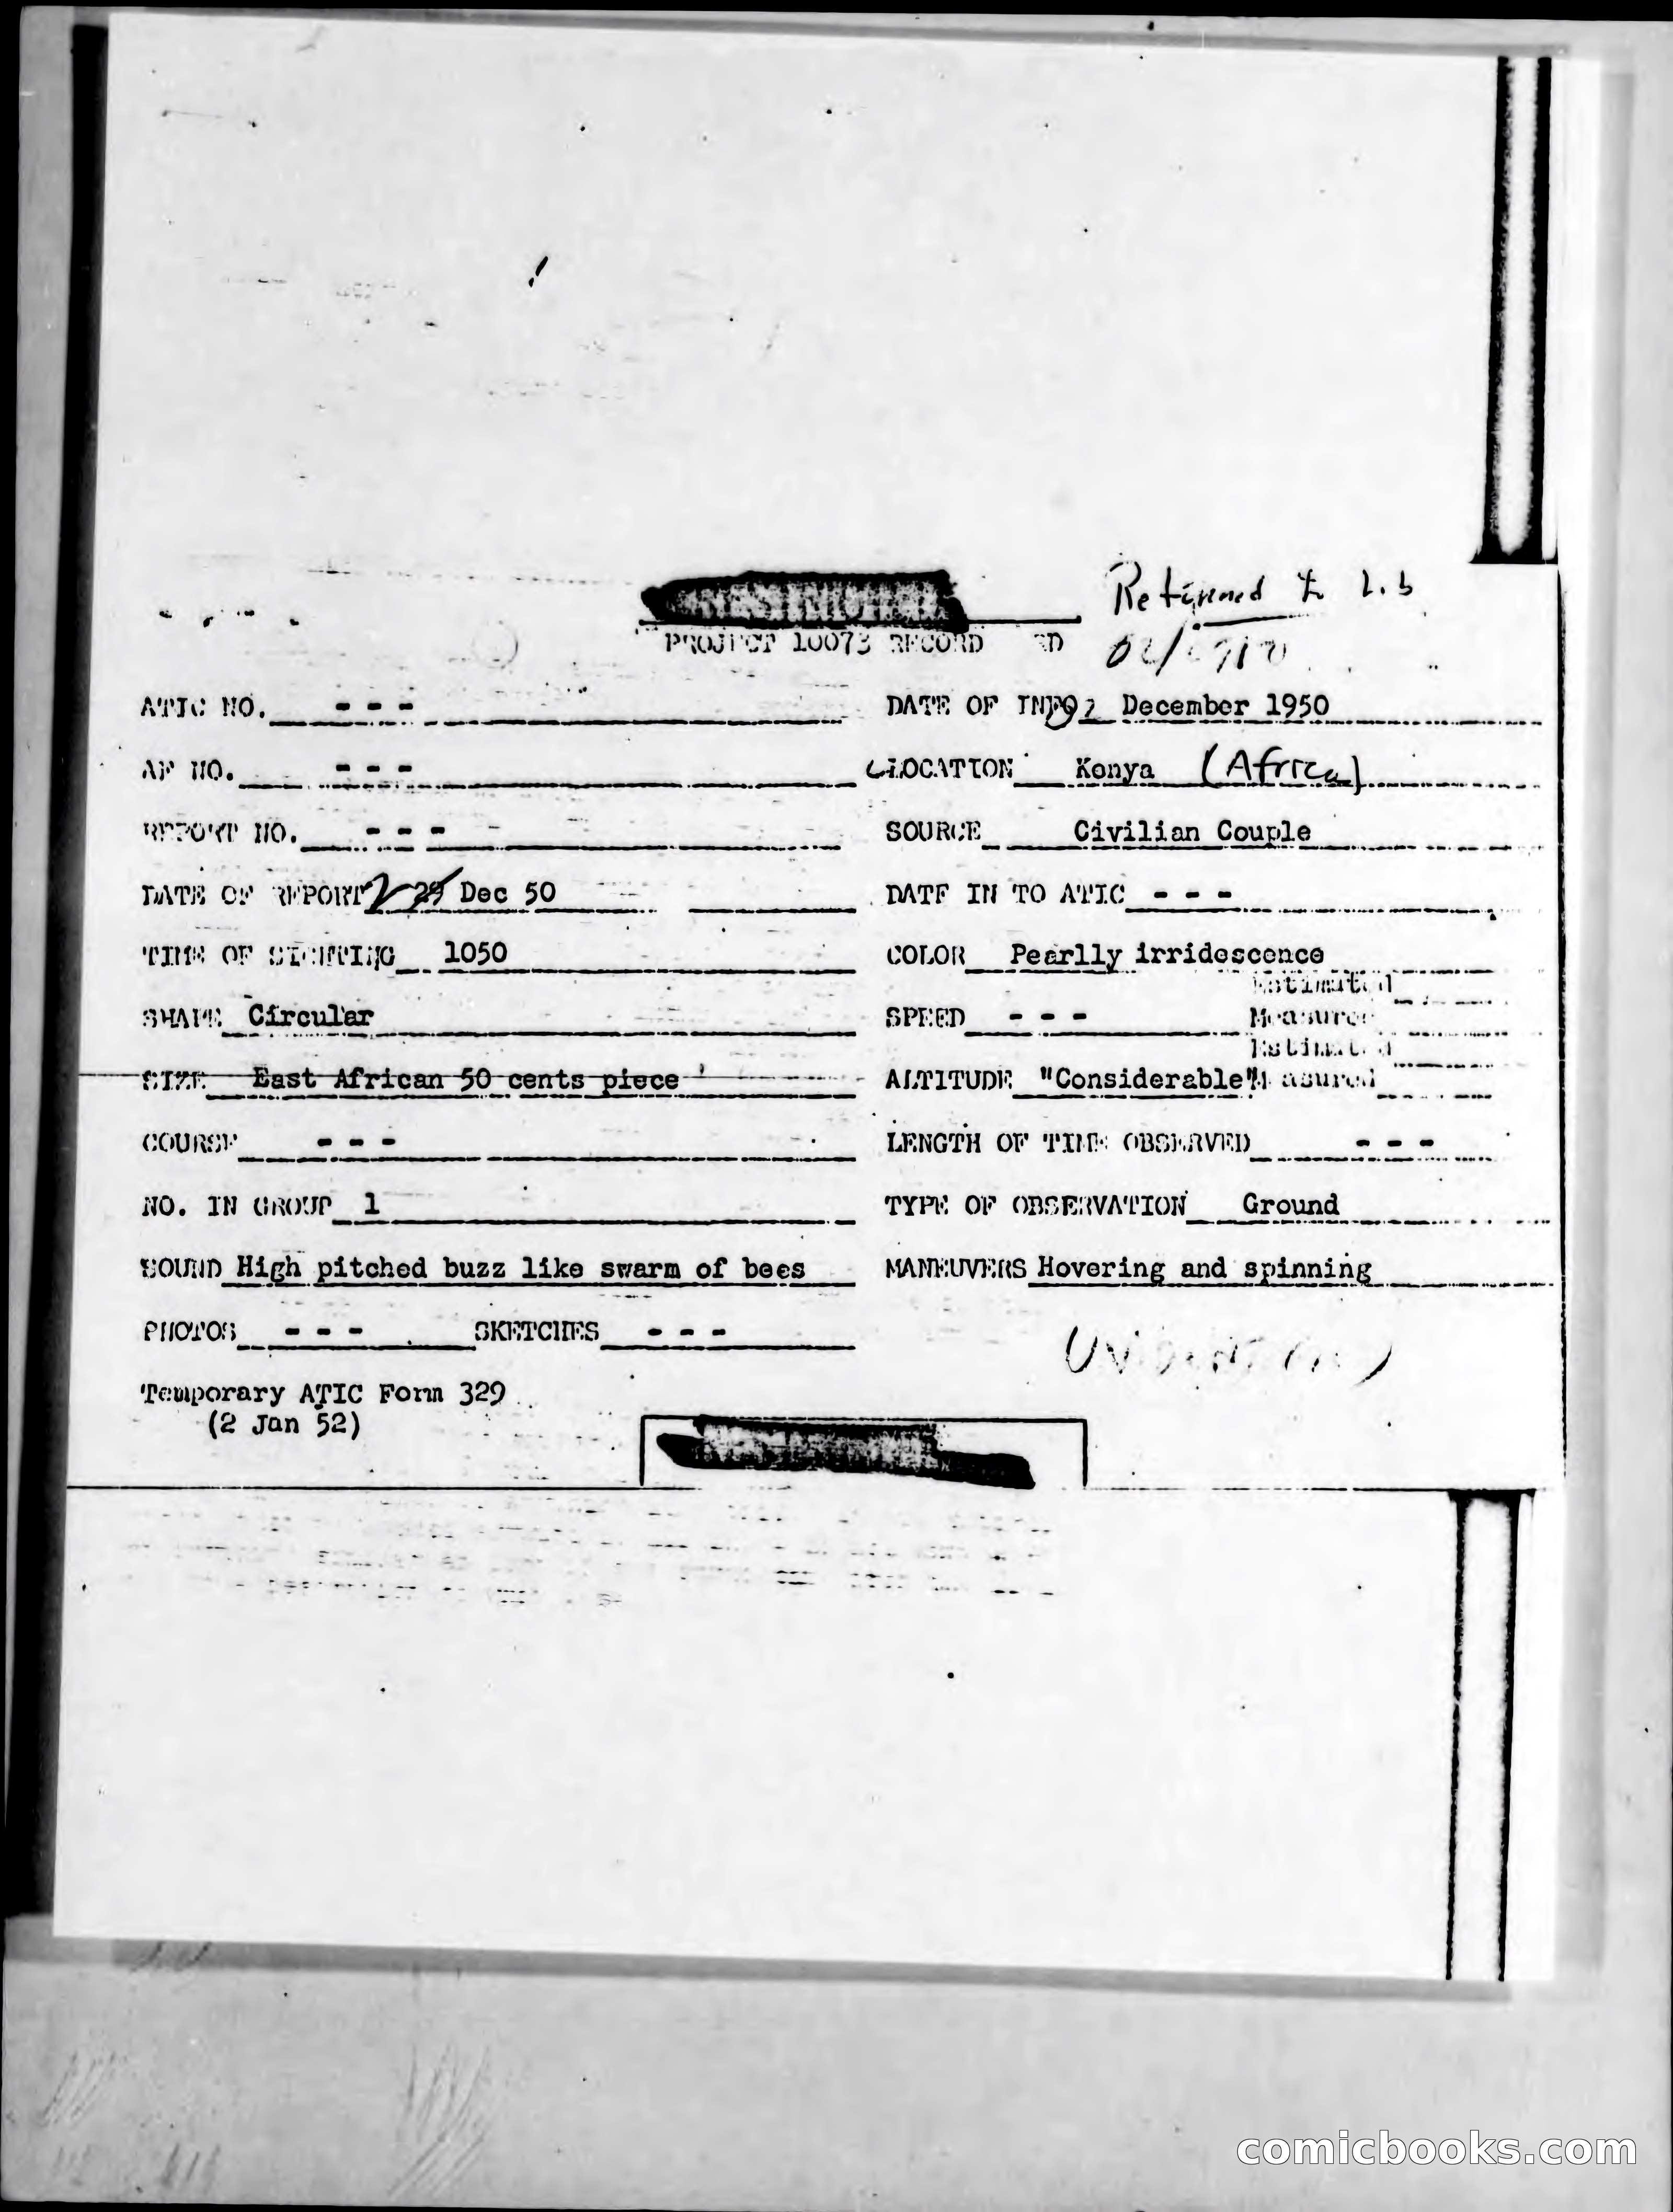 Returned to
PROJECT 10073 RECORD
ATIC NO. - - - DATE OF INFO 2 December 1950
AF NO. - - - LOCATION Kenya (Africa)
REPORT NO. - - - SOURCE Civilian Couple
DATE OF REPORT 2 29 Dec 50 DATE IN TO ATIC - - -
TIME OF SIGHTING 1050 COLOR Pearlly irridescence
Estimated
SHAPE Circular SPEED - - - Measured
Estimated
SIZE East African 50 cents piece ALTITUDE "Considerable" Measured
COURSE - - - LENGTH OF TIME OBSERVED - - -
NO. IN GROUP 1 TYPE OF OBSERVATION Ground
SOUND High pitched buzz like swarm of bees MANEUVERS Hovering and spinning
PHOTOS - - - SKETCHES - - -
Temporary ATIC Form 329
(2 Jan 52)
comicbooks.com